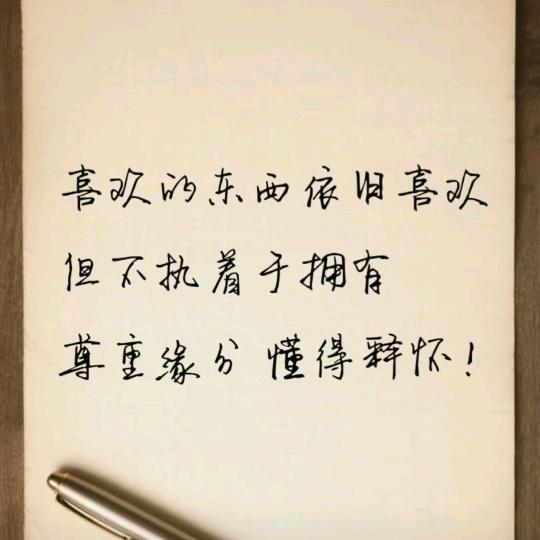 喜欢的东西依旧喜欢
但不执着于拥有
尊重缘分 懂得释怀！